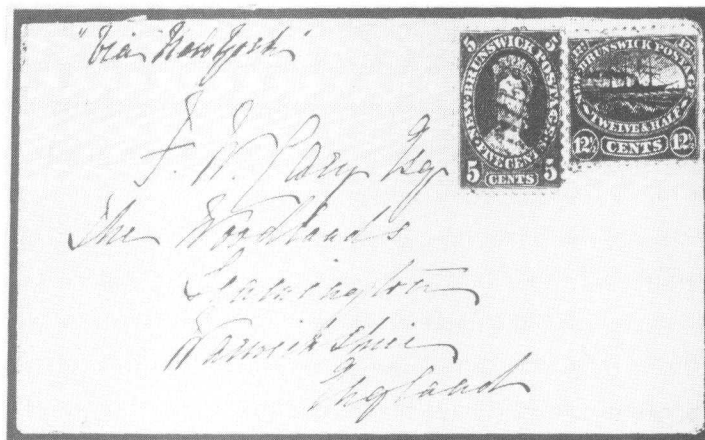 "Via New York"
F. W. Cary Esq
The Woodlands
Leamington
Warwickshire
England
5 5
NEW BRUNSWICK POSTAGE
FIVE CENTS
5 CENTS 5
12½ 12½
NEW BRUNSWICK POSTAGE
TWELVE & HALF
12½ CENTS 12½